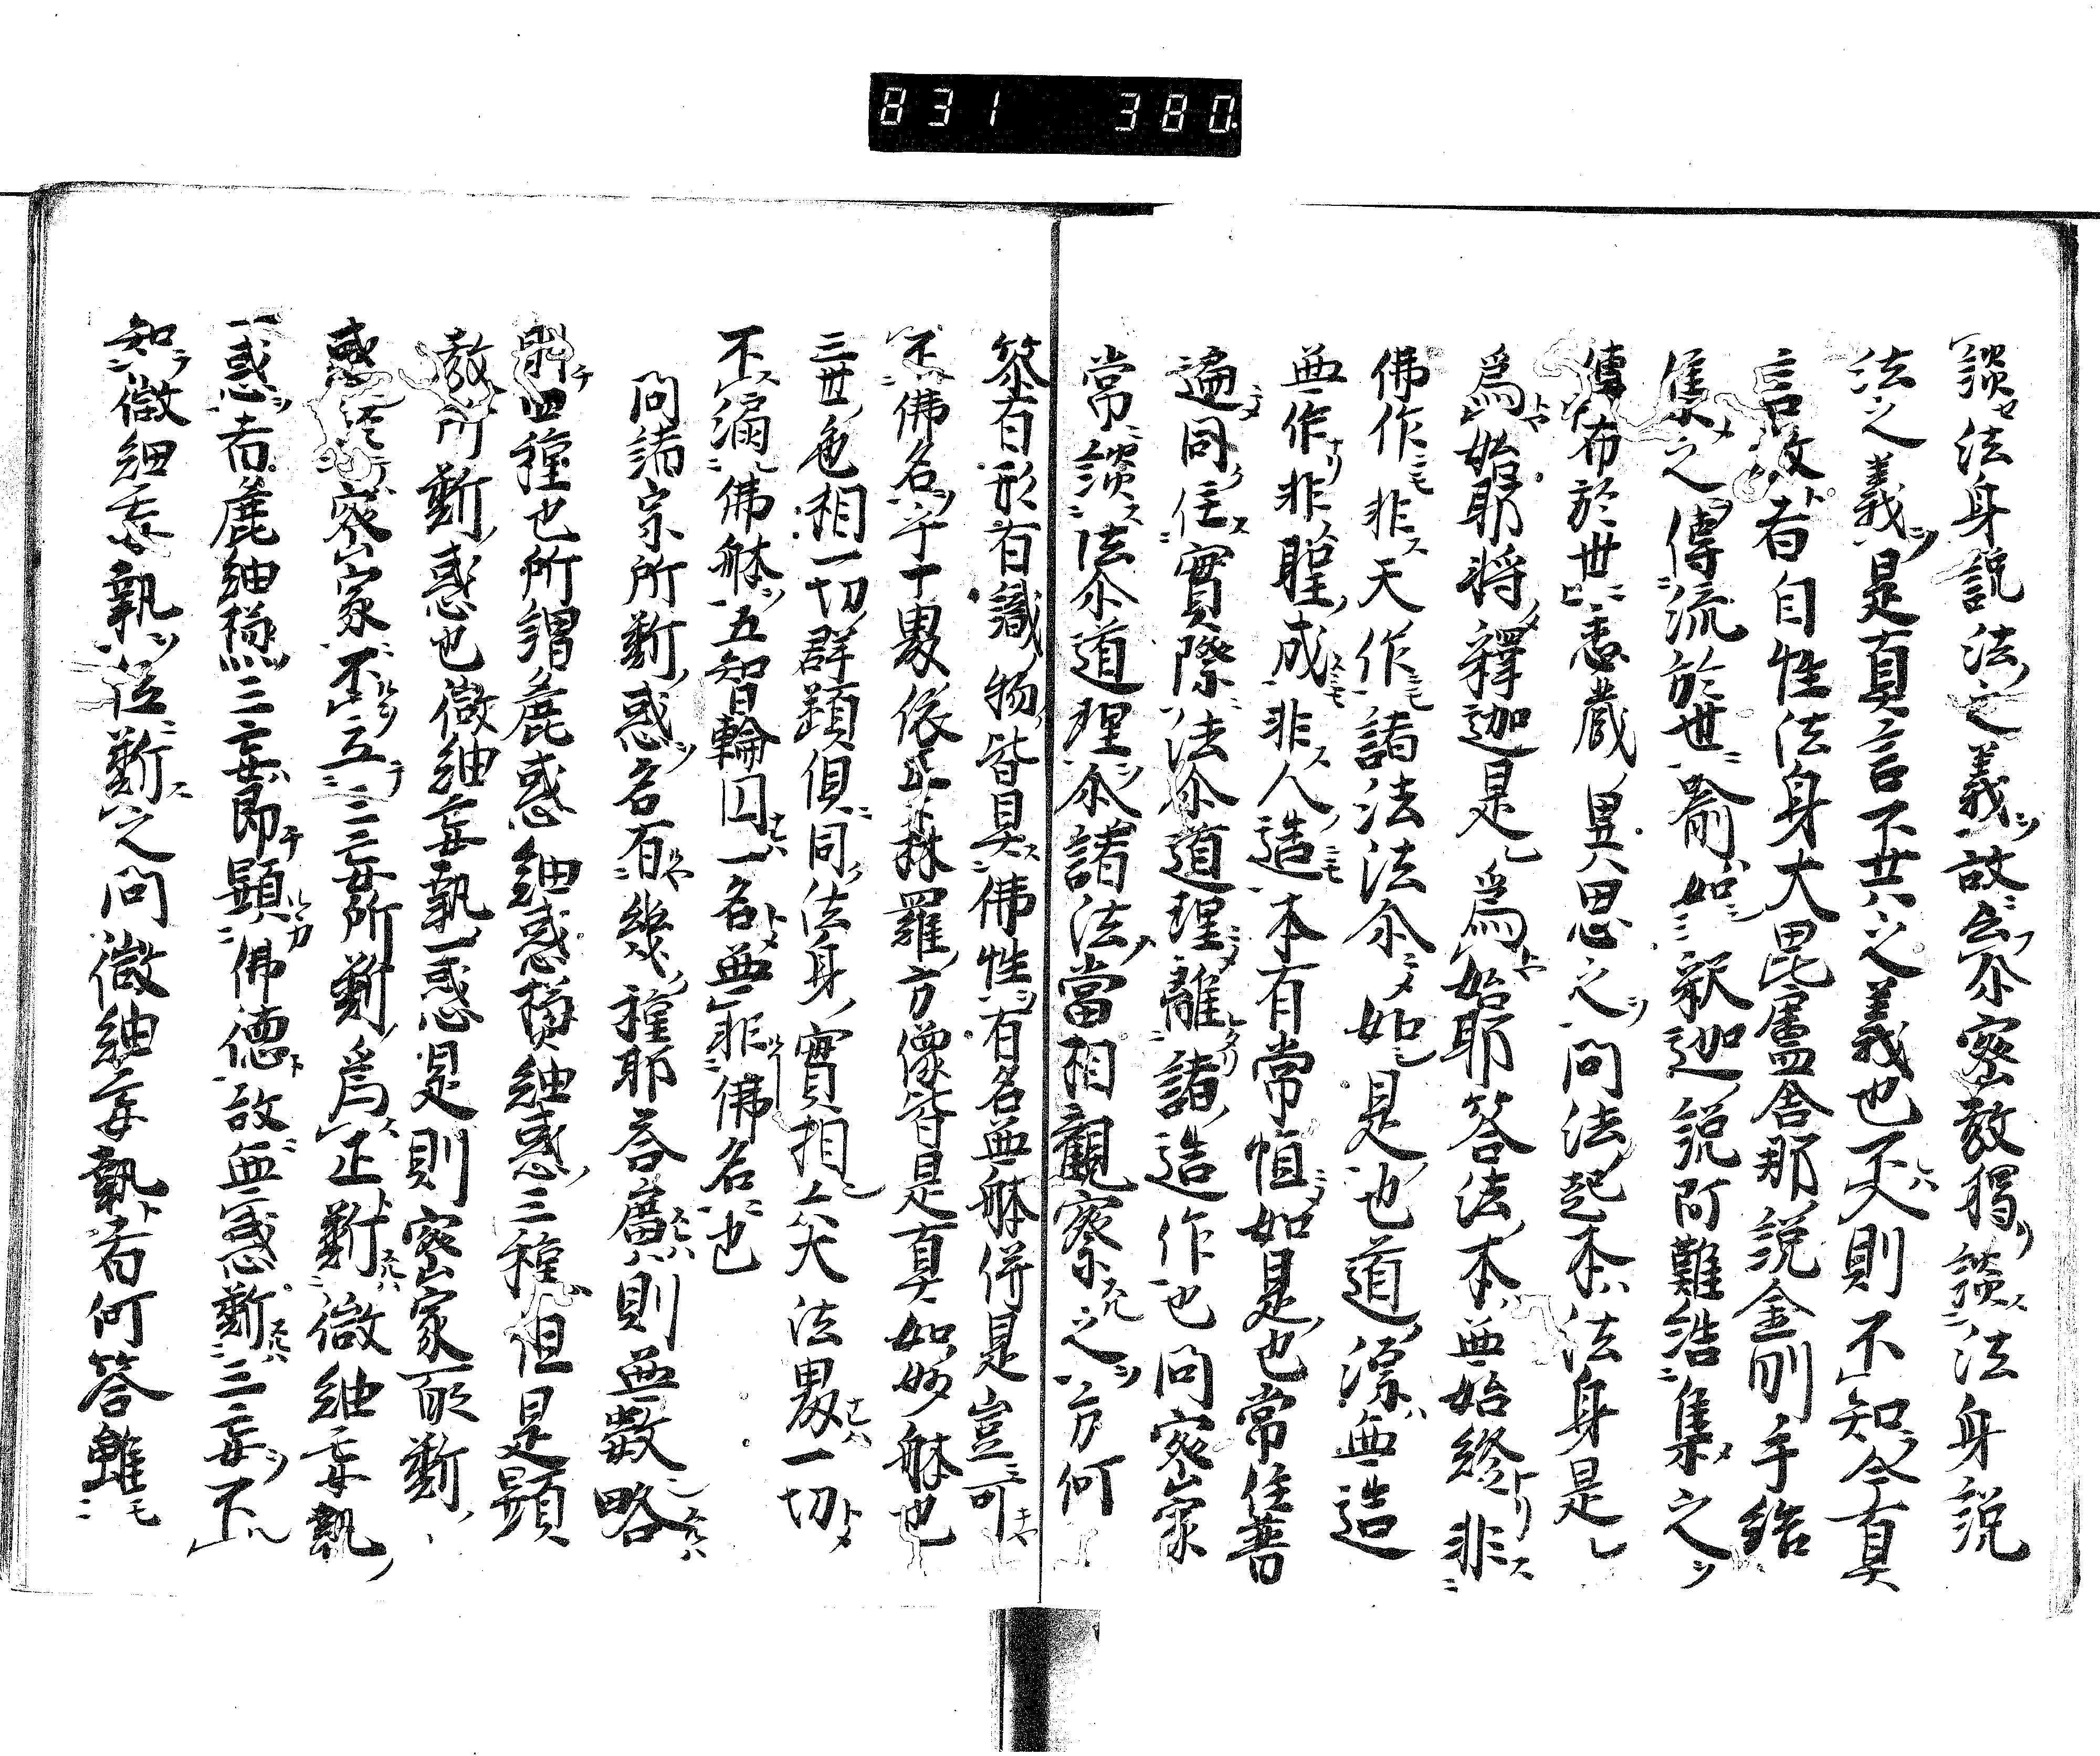 831 380
談法身説法之義故云尒密教獨談法身説
法之義是真言不共之義也不入則不知今真
言教者自性法身大毘盧舎那説金剛手結
集之傳流於世喩如釈迦説阿難結集之
傳布於世悉蔵異思之問法起本法身是
爲始耶将釋迦是爲始耶答法本無始終非
佛作非天作諸法法尒如是也道深無造
無作非聖成非人造本有常恒如是也常住普
遍同住實際法尒道理離諸造作也問密家
常談法尒道理尒諸法當相觀察之方何
答有形有識物皆具佛性有名無躰併是豈可
不佛名乎十界依正森羅方像皆是真如妙躰也
三世色相一切群類倶同法身實相矣法界一切
不漏佛躰五智輪円一名無非佛名也
問諸宗所斷惑名有幾種耶答廣則無數略
則四種也所謂麁惑細惑極細惑三種但是顕
教所斷惑也微細妄執一惑是則密家所斷
惑密家不立三妄所斷爲正斷微細妄執
一惑者麁細極三妄即顕佛徳故無惑斷三妄不
知微細妄執位斷之問微細妄執者何答雖